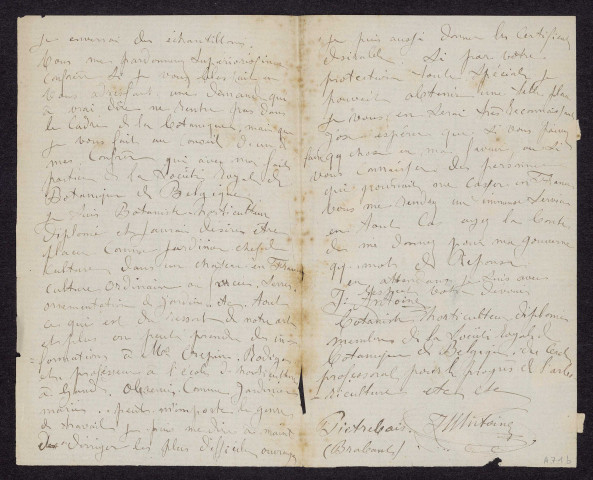 Je enverrai des échantillons.
Vous me pardonnerez
Confrère si je vous
Vous adressant une demande qui
à vrai dire ne rentre pas dans
le cadre de la botanique, mais que
je vous fait au
mes Confrère qui avec moi fait
partie de la Société royale de
Botanique de Belgique
Je suis Botaniste horticulteur
Diplomé et j'aurais désirer être
placer comme jardinier chef de
culture dans un château en France
culture ordinaire ou Serres,
ornementation de jardin, etc. tout
ce qui est du ressort de notre art
et plus on peut prendre des in-
formations à Mrs Crepin, Rodigas
etc, professeur à l'école d'horticulture
à Gand. Comme jardinier
peut m'importe le genre
de travail je puis me dire à même
de diriger les plus difficiles ouvrages
Je puis aussi donner les certificats
désirable. Si par votre
protection toute Spéciale je
pouvais obtenir une telle place
je vous en serai très reconnaissant
J'ose espérer que si vous pouvez
faire qq chose en ma faveur ou si
vous connaissez des personnes
qui pourraient me caser en France
vous me rendez un énorme service
en tout cas ayez la bonté
de me donner pour ma gouverne
qq mots de Réponse
en attendant je suis avec
respect votre dévoué
J. Antoine
botaniste horticulteur, diplomé
membres de la Société royale de
botanique de Belgique, du Cercle
professoral pour le progrès de l'arbo
-riculture etc etc
Pietrebais JAntoine
(Brabant)
A 71 b